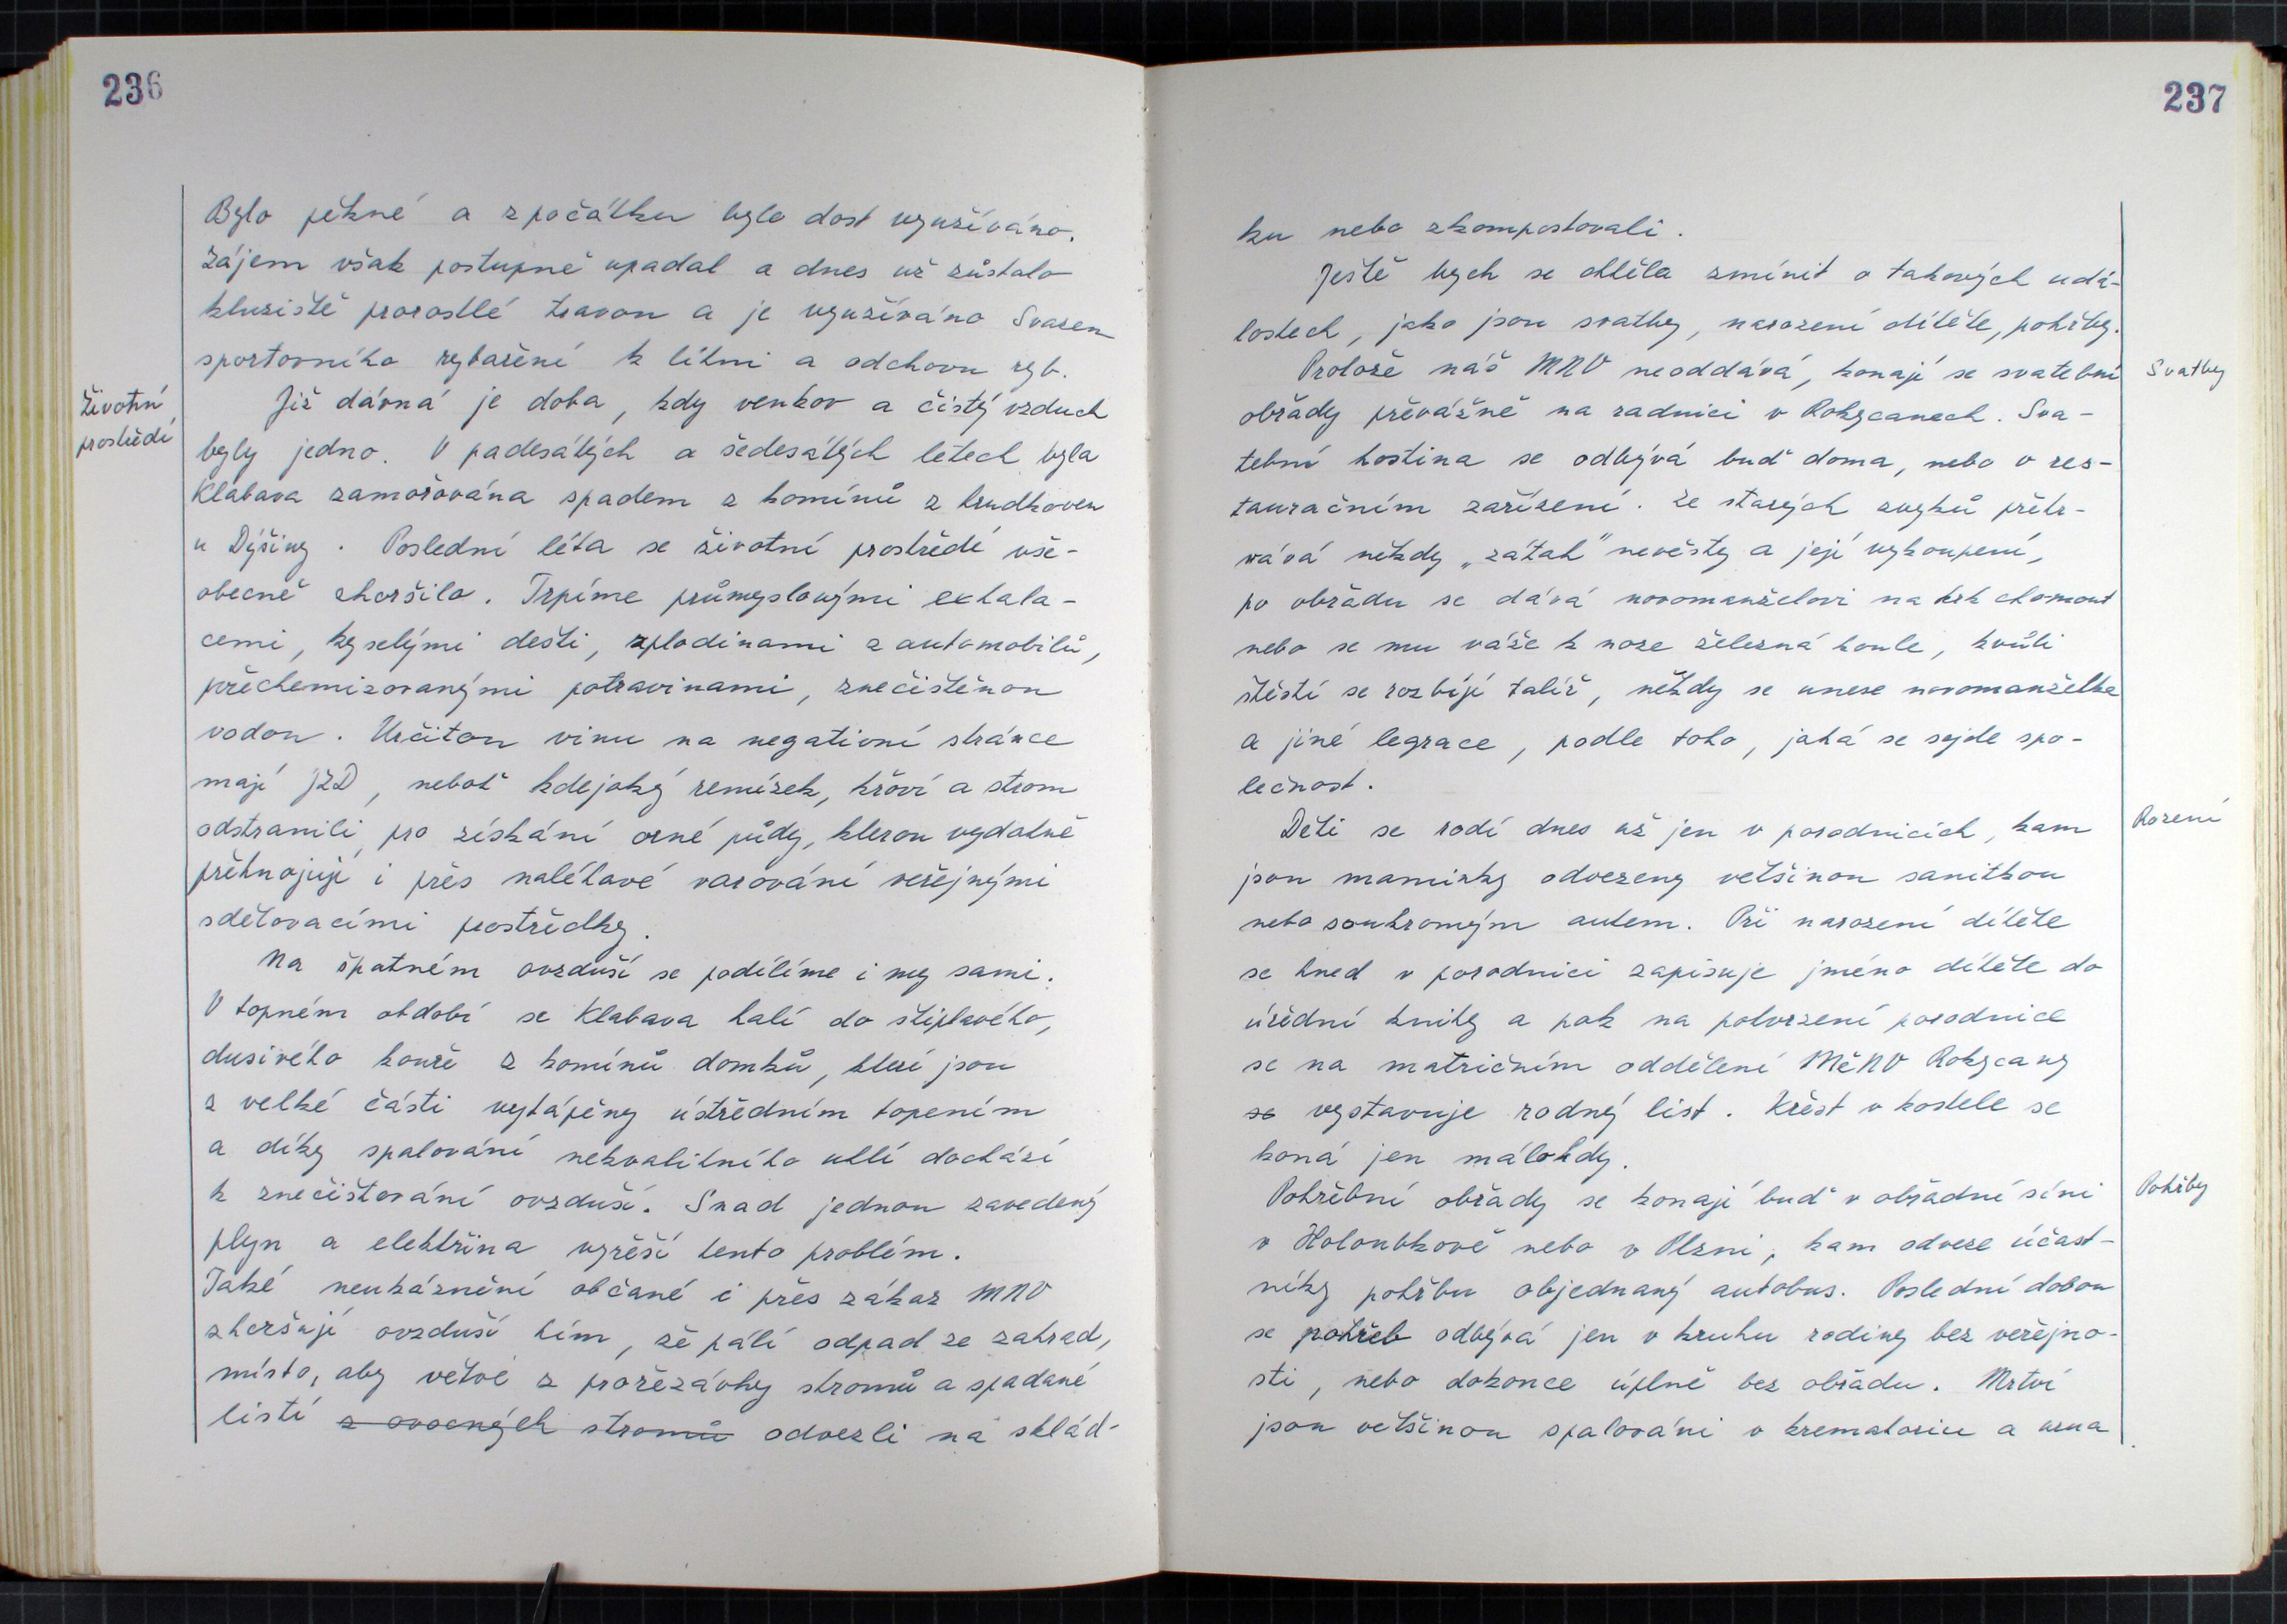 236
Bylo pěkné a zpočátku bylo dost využíváno.
Zájem však postupně upadal a dnes už zůstalo
kluziště prorostlé travou a je využíváno Svazem
sportovního rybaření k líhni a odchovu ryb.
Životní
prostředí
Již dávná je doba, kdy venkov a čistý vzduch
byly jedno. V padesátých a šedesátých letech byla
Klabava zamořována spadem z komínů z hrudkoven
u Dýšiny. Poslední léta se životní prostředí vše-
obecně zhoršilo. Trpíme průmyslovými exhala-
cemi, kyselými dešti, zplodinami z automobilů,
přechemizovanými potravinami, znečištěnou
vodou. Určitou vinu na negativní stránce
mají JZD, neboť kdejaký remízek, křoví a strom
odstranili pro získání orné půdy, kterou vydatně
přehnojují i přes naléhavé varování veřejnými
sdělovacími prostředky.
Na špatném ovzduší se podílíme i my sami.
V topném období se Klabava halí do štiplavého,
dusivého kouře z komínů domků, kteří jsou
z velké části vytápěny ústředním topením
a díky spalování nekvalitního uhlí dochází
k znečišťování ovzduší. Snad jednou zavedený
plyn a elektřina vyřeší tento problém.
Také neukáznění občané i přes zákaz MNV
zhoršují ovzduší tím, že pálí odpad ze zahrad,
místo, aby větve z prořezávky stromů a spadané
listí z ovocných stromů odvezli na sklád-
237
ku nebo zkompostovali.
Ještě bych se chtěla zmínit o takových udá-
lostech, jako jsou svatby, narození dítěte, pohřby.
Svatby
Protože náš MNV neoddává, konají se svatební
obřady převážně na radnici v Rokycanech. Sva-
tební hostina se odbývá buď doma, nebo v res-
tauračním zařízení. Ze starých zvyků přetr-
vává někdy „zátah" nevěsty a její vykoupení,
po obřadu se dává novomanželovi na krk chomout
nebo se mu váže k noze železná koule, kvůli
štěstí se rozbíjí talíř, někdy se unese novomanželka
a jiné legrace, podle toho, jaká se sejde spo-
lečnost.
Rození
Děti se rodí dnes už jen v porodnicích, kam
jsou maminky odvezeny většinou sanitkou
nebo soukromým autem. Při narození dítěte
se hned v porodnici zapisuje jméno dítěte do
úřední knihy a pak na potvrzení porodnice
se na matričním oddělení MěNV Rokycany
se vystavuje rodný list. Křest v kostele se
koná jen málokdy.
Pohřby
Pohřební obřady se konají buď v obřadní síni
v Holoubkově nebo v Plzni, kam odveze účast-
níky pohřbu objednaný autobus. Poslední dobou
se pohřeb odbývá jen v kruhu rodiny bez veřejno-
sti, nebo dokonce úplně bez obřadu. Mrtví
jsou většinou spalováni v krematoriu a urna